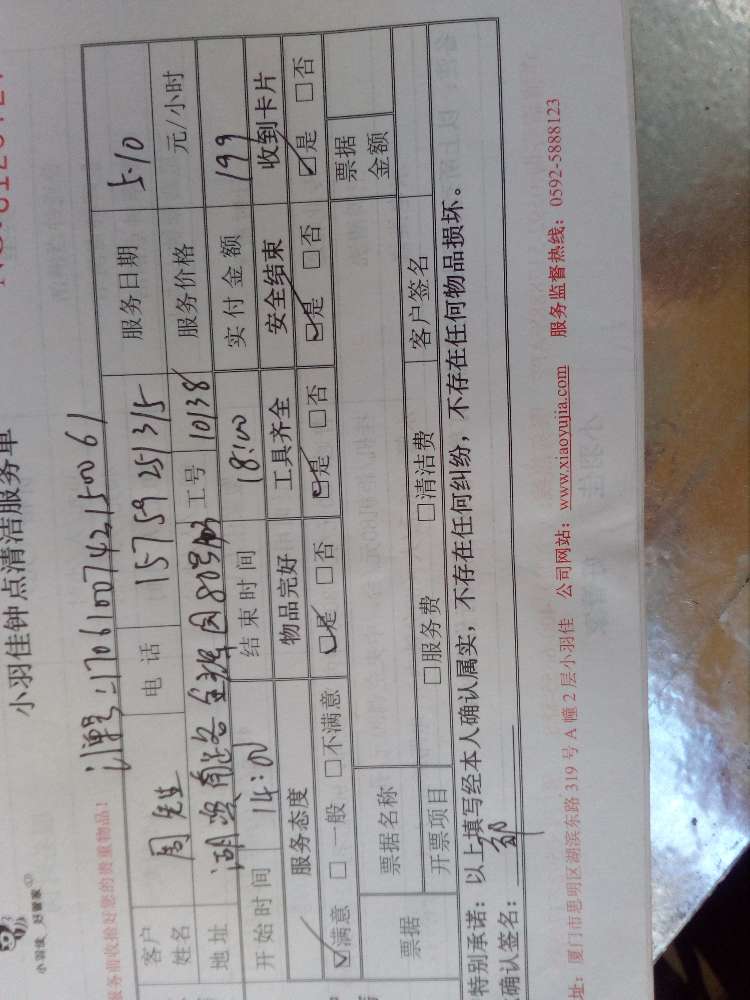 小羽佳 好管家
小羽佳钟点清洁服务单
服务前收拾好您的贵重物品!
订单号:1706100742150061
客户姓名 周先生 电话 15759251315 服务日期 5.10
地址 湖滨南路 工号 10138 服务价格 元/小时
开始时间 14:00 结束时间 18:00 实付金额 199
服务态度 物品完好 工具齐全 安全结束 收到卡片
☑满意 □一般 □不满意 ☑是 □否 ☑是 □否 ☑是 □否 ☑是 □否
票据 票据名称 票据金额
开票项目 □服务费 □清洁费 客户签名
特别承诺:以上填写经本人确认属实,不存在任何纠纷,不存在任何物品损坏。
确认签名:
址:厦门市思明区湖滨东路 319 号 A 幢 2 层小羽佳 公司网站:www.xiaoyujia.com 服务监督热线:0592-5888123